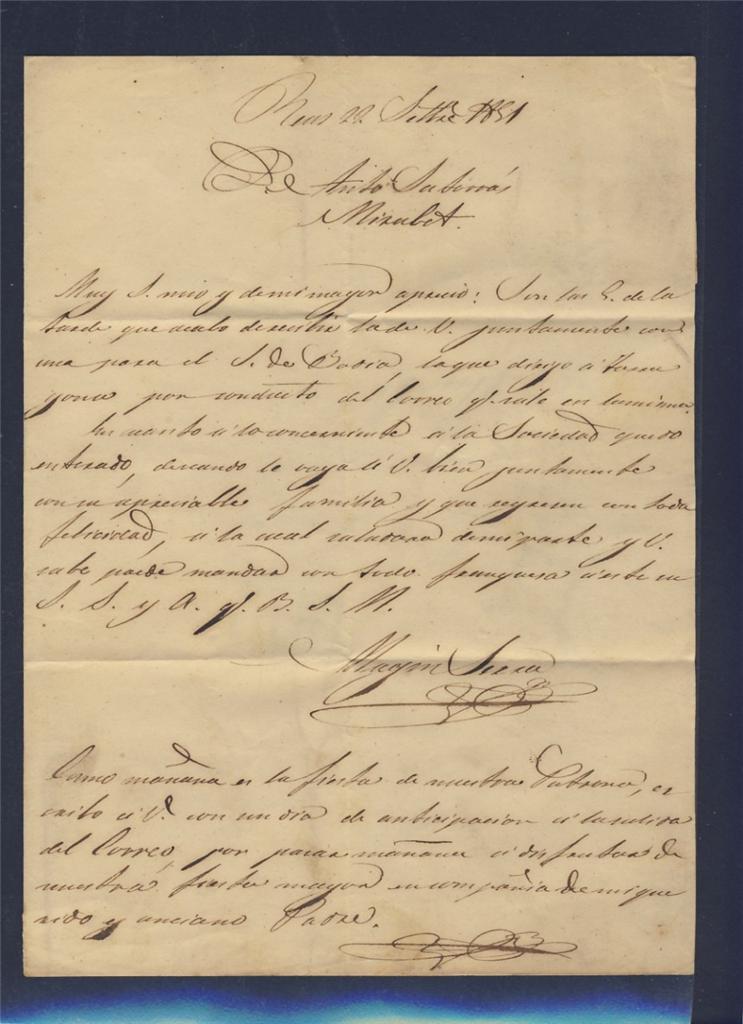 Reus 22 Setbre 1851
Dn Anto Saborás
Mirabet.
Muy S. mio y de mi mayor aprecio: Son las 5. de la
tarde que acabo de recibir la de V. juntamente con
una para el S. de Badia, la que dirijo a Tarra
gona por conducto del Correo qe. sale en la misma.
En cuanto á lo concerniente á la Sociedad quedo
enterado, deseando le vaya á V. bien juntamente
con su apreciable familia y que regresen con toda
felicidad, á la cual saludará de mi parte y V.
sabe puede mandar con todo franquesa á este su
S. S. y A. q. B. S. M.
Magin
Como mañana es la fiesta de nuestra Patrona, es
cribo á V. con un dia de anticipacion á la salida
del Correo, por pasar mañana á disfrutar de
nuestra fiesta mayor en compañia de mi que
rido y anciano Padre.